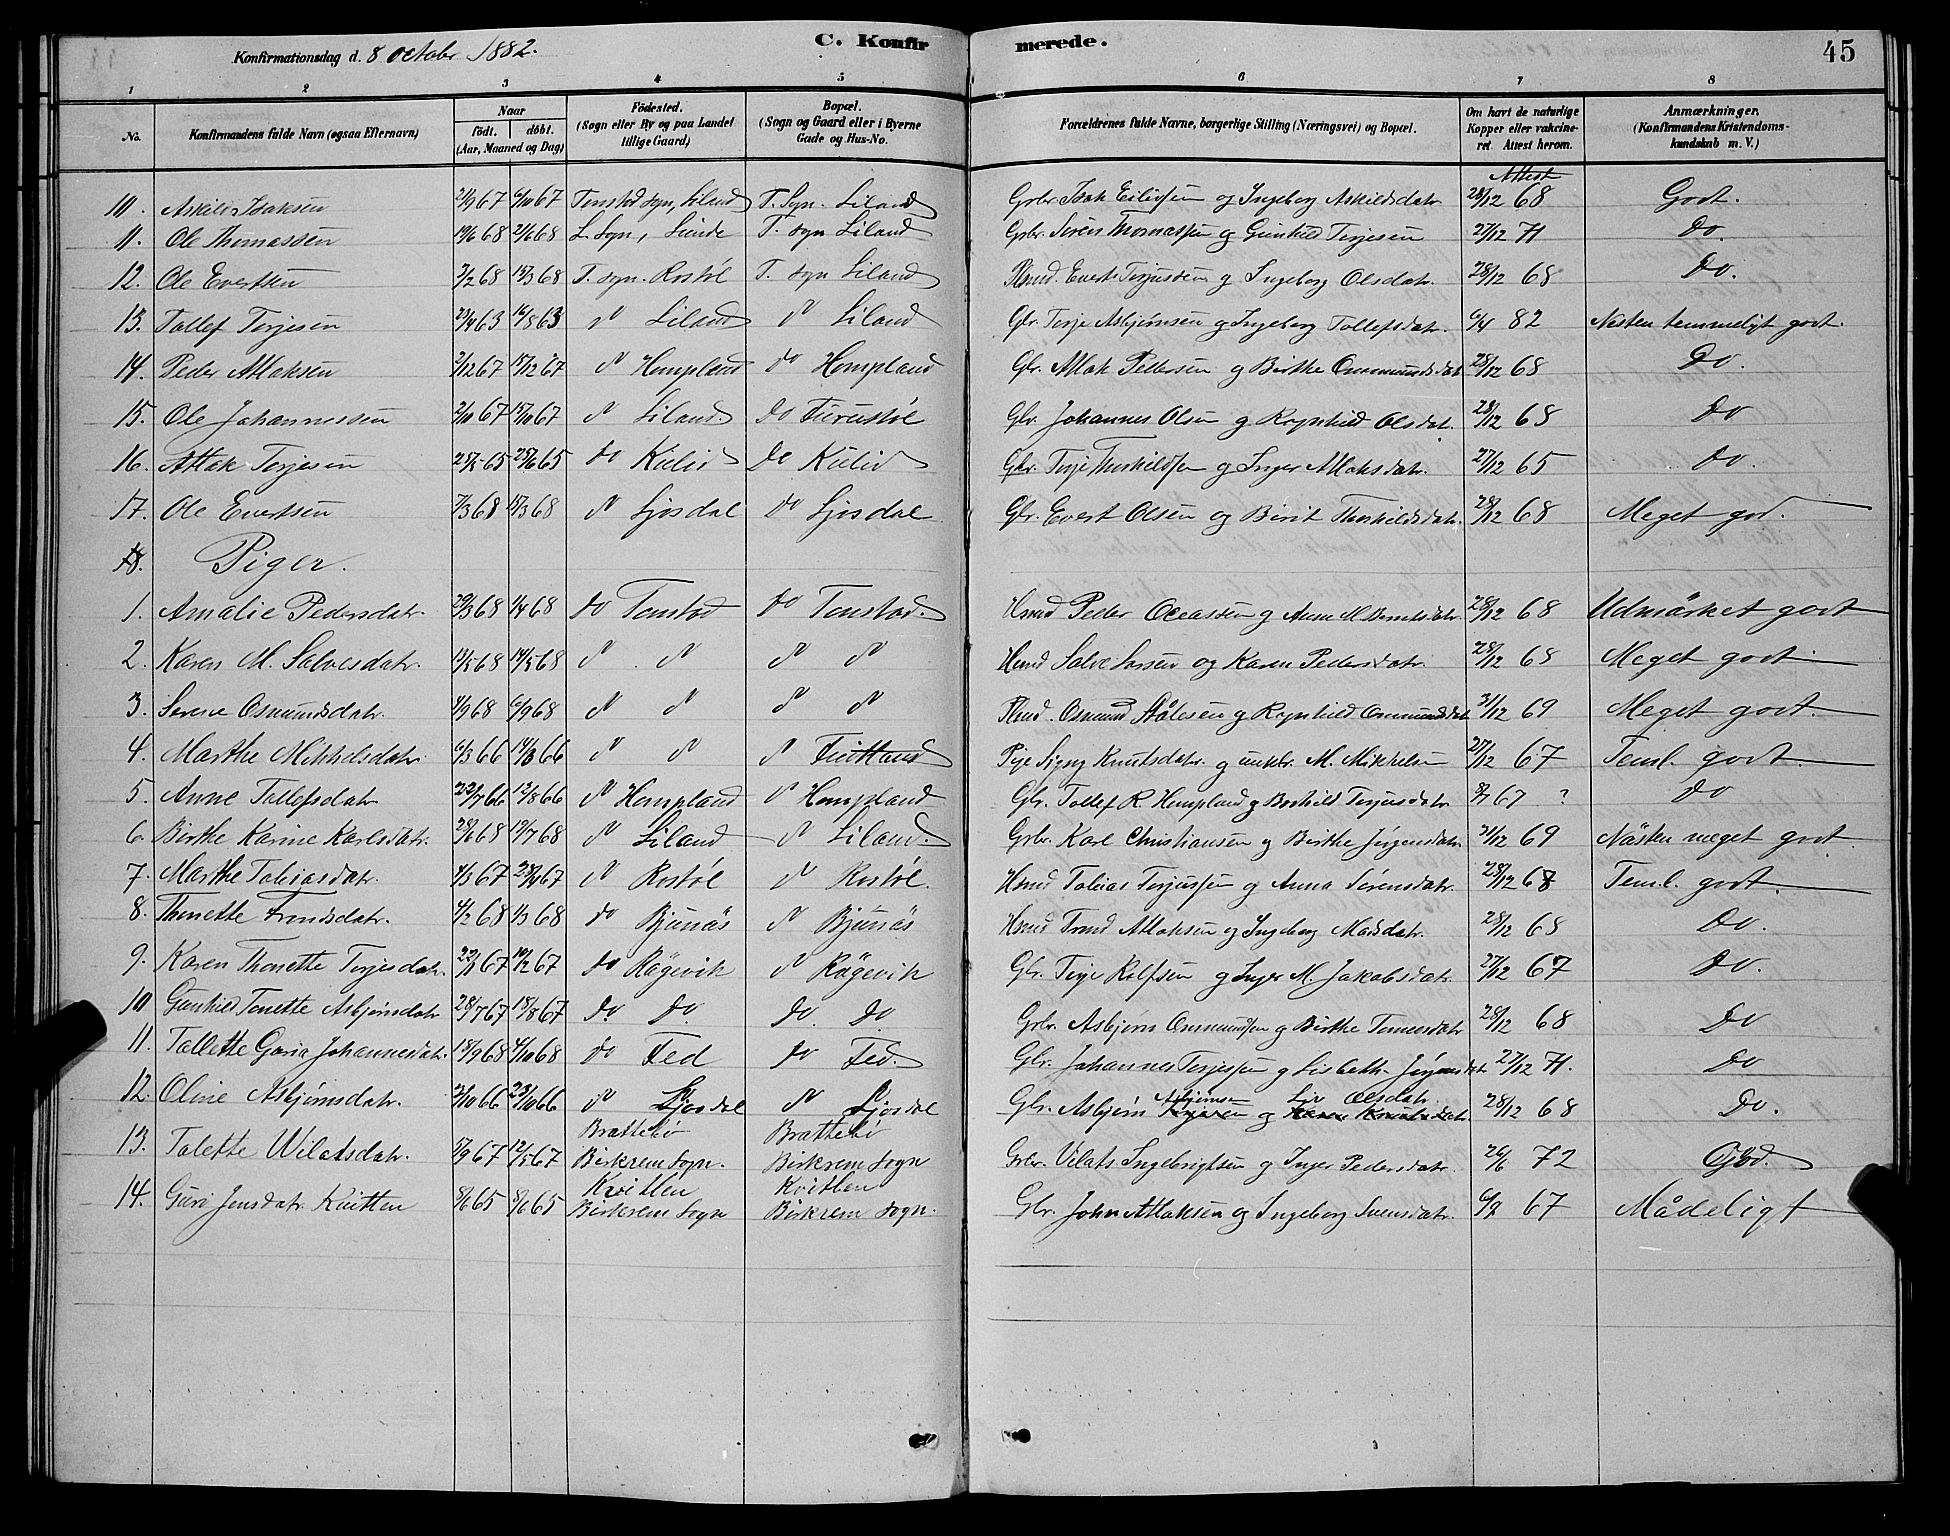 Konfirmationsdag d. 8 october 1882.
C. Konfirmerede.
45
1 2 3 4 5 6 7 8
No.
Konfirmandens fulde Navn (ogsaa Efternavn)
Naar födt. döbt. (Aar, Maaned og Dag)
Födested. (Sogn eller By og paa Landet tillige Gaard)
Bopæl. (Sogn og Gaard eller i Byerne Gade og Hus-No.
Forældrenes fulde Navne, borgerlige Stilling (Næringsvei) og Bopæl.
Om havt de naturlige Kopper eller vakcineret. Attest herom.
Anmærkninger. (Konfirmandens Kristendomskundskab m. V.)
Attest
10. Askild Isaksen 21/9 67 6/10 67 Tonstad sogn, Liland T. Sogn. Liland Grbr. Isak Eilivsen og Ingeborg Askildsdatr. 28/12 68 Godt.
11. Ole Thomassen 19/6 68 21/6 68 L. Sogn, Lunde T. sogn Liland Grbr. Sören Thomassen og Gunhild Terjesen 27/12 71 Do.
12. Ole Evertsen 2/2 68 15/3 68 T. sogn. Rostöl T. sogn Liland Hsmd. Evert Terjussen og Ingeborg Olsdatr. 28/12 68 Do.
13. Tollef Terjesen 23/4 63 16/8 63 do Liland do Liland Gbr. Terje Asbjørnsen og Ingeborg Tollefsdatr. 6/4 82 Nesten temmeligt godt.
14. Peder Atlaksen 2/12 67 15/12 67 do Hompland do Hompland Gbr. Atlak Pedersen og Birthe Ommundsdatr 28/12 68 Do.
15. Ole Johannessen 2/10 67 15/10 67 do Liland do Furustöl Gbr. Johannes Olsen og Ragnhild Olsdat. 28/12 68 Do
16. Atlak Terjesen 25/5 65 25/6 65 do Kulid do Kulid Gbr. Terje Thorkildsen og Inger Atlaksdatr. 27/12 65 Do.
17. Ole Evertsen 7/3 68 15/3 68 do Sjosdal do Sjosdal Gbr. Evert Olsen og Birit Thorkildsdatr. 28/12 68 Meget god.
18. Piger.
1. Amalie Pedersdatr. 29/3 68 1/4 68 do Tonstad do Tonstad. Hsmd Peder Oleassen og Anne M Berntsdatr. 28/12 68 Udmärket godt
2. Karen M. Salvesdatr. 13/5 68 14/5 68 do do do do Hsmd Salve Larsen og Karen Pedersdatr. 28/12 68 Meget godt.
3. Serine Osmundsdatr. 4/9 68 6/9 68 do do do do Hsmd. Osmund Ståle­sen og Ragnhild Ommundsdat 31/12 69 Meget godt.
4. Marthe Mikkelsdatr. 6/3 66 14/3 66 do do do Fintland Pige Signy Knutsdatr. og unkbr. M. Mikkelsen 27/12 67 Teml. godt.
5. Anne Tollefsdatr 22/7 66 12/8 66 do Hompland do Hompland Gbr. Tollef R. Hompland og Borhild Terjusdatr 8/7 67 ? Do
6. Birthe Karine Karlsdatr. 28/6 68 19/7 68 do Liland do Liland. Grbr. Karl Christiansen og Birthe Jörgensdatr 31/12 69 Nästen meget godt.
7. Marthe Tobiasdatr. 4/3 67 28/4 67 do Rostöl do Rostöl. Hsmd Tobias Terjussen og Anna Sörensdatr. 28/12 68 Teml. godt.
8. Thonette Trondsdatr. 4/2 68 1/3 68 do Bjunäs do Bjunäs Hsmd Trond Atlaksen og Ingeborg Madsdatr. 28/12 68 Do.
9. Karen Thonette Terjesdatr. 22/1 67 10/2 67 do Rägevik do Rägevik Gbr. Terje Rolfsen og Inger M. Jakobsdatr. 27/12 67 Do.
10 Gunhild Tonette Asbjørnsdatr 28/7 67 18/8 67 do. Do. Do. Do Grbr. Asbjørn Ommundsen og Birthe Tonnesdatr 28/12 68 Do
11. Tallette Garia Johannesdatr. 18/9 68 4/10 68 do Fed do Fed. Gbr. Johannes Terjessen og Lisbeth Jörgensdat 27/12 71. Do
12. Oline Asbjørnsdatr. 2/10 66 23/10 66 do Sjosdal do Sjosdal Gbr. Asbjørn Asbjørnsen og Liv Olsdatr. 28/12 68 Do.
13. Talette Wilatsdatr. 5/9 67 12/5 67 Brattebö Birkrem sogn. Brattebö Birkrem sogn Grbr. Vilats Ingebrigtsen og Inger Pedersdatr. 26/6 72 God.
14. Guri Jonsdatr. Kvitten 5/6 65 5/6 65 Kvitlen Birkrem sogn Kvitlen Birkrem sogn. Gbr. John Atlaksen og Ingeborg Svensdatr. 6/9 67 Mådeligt